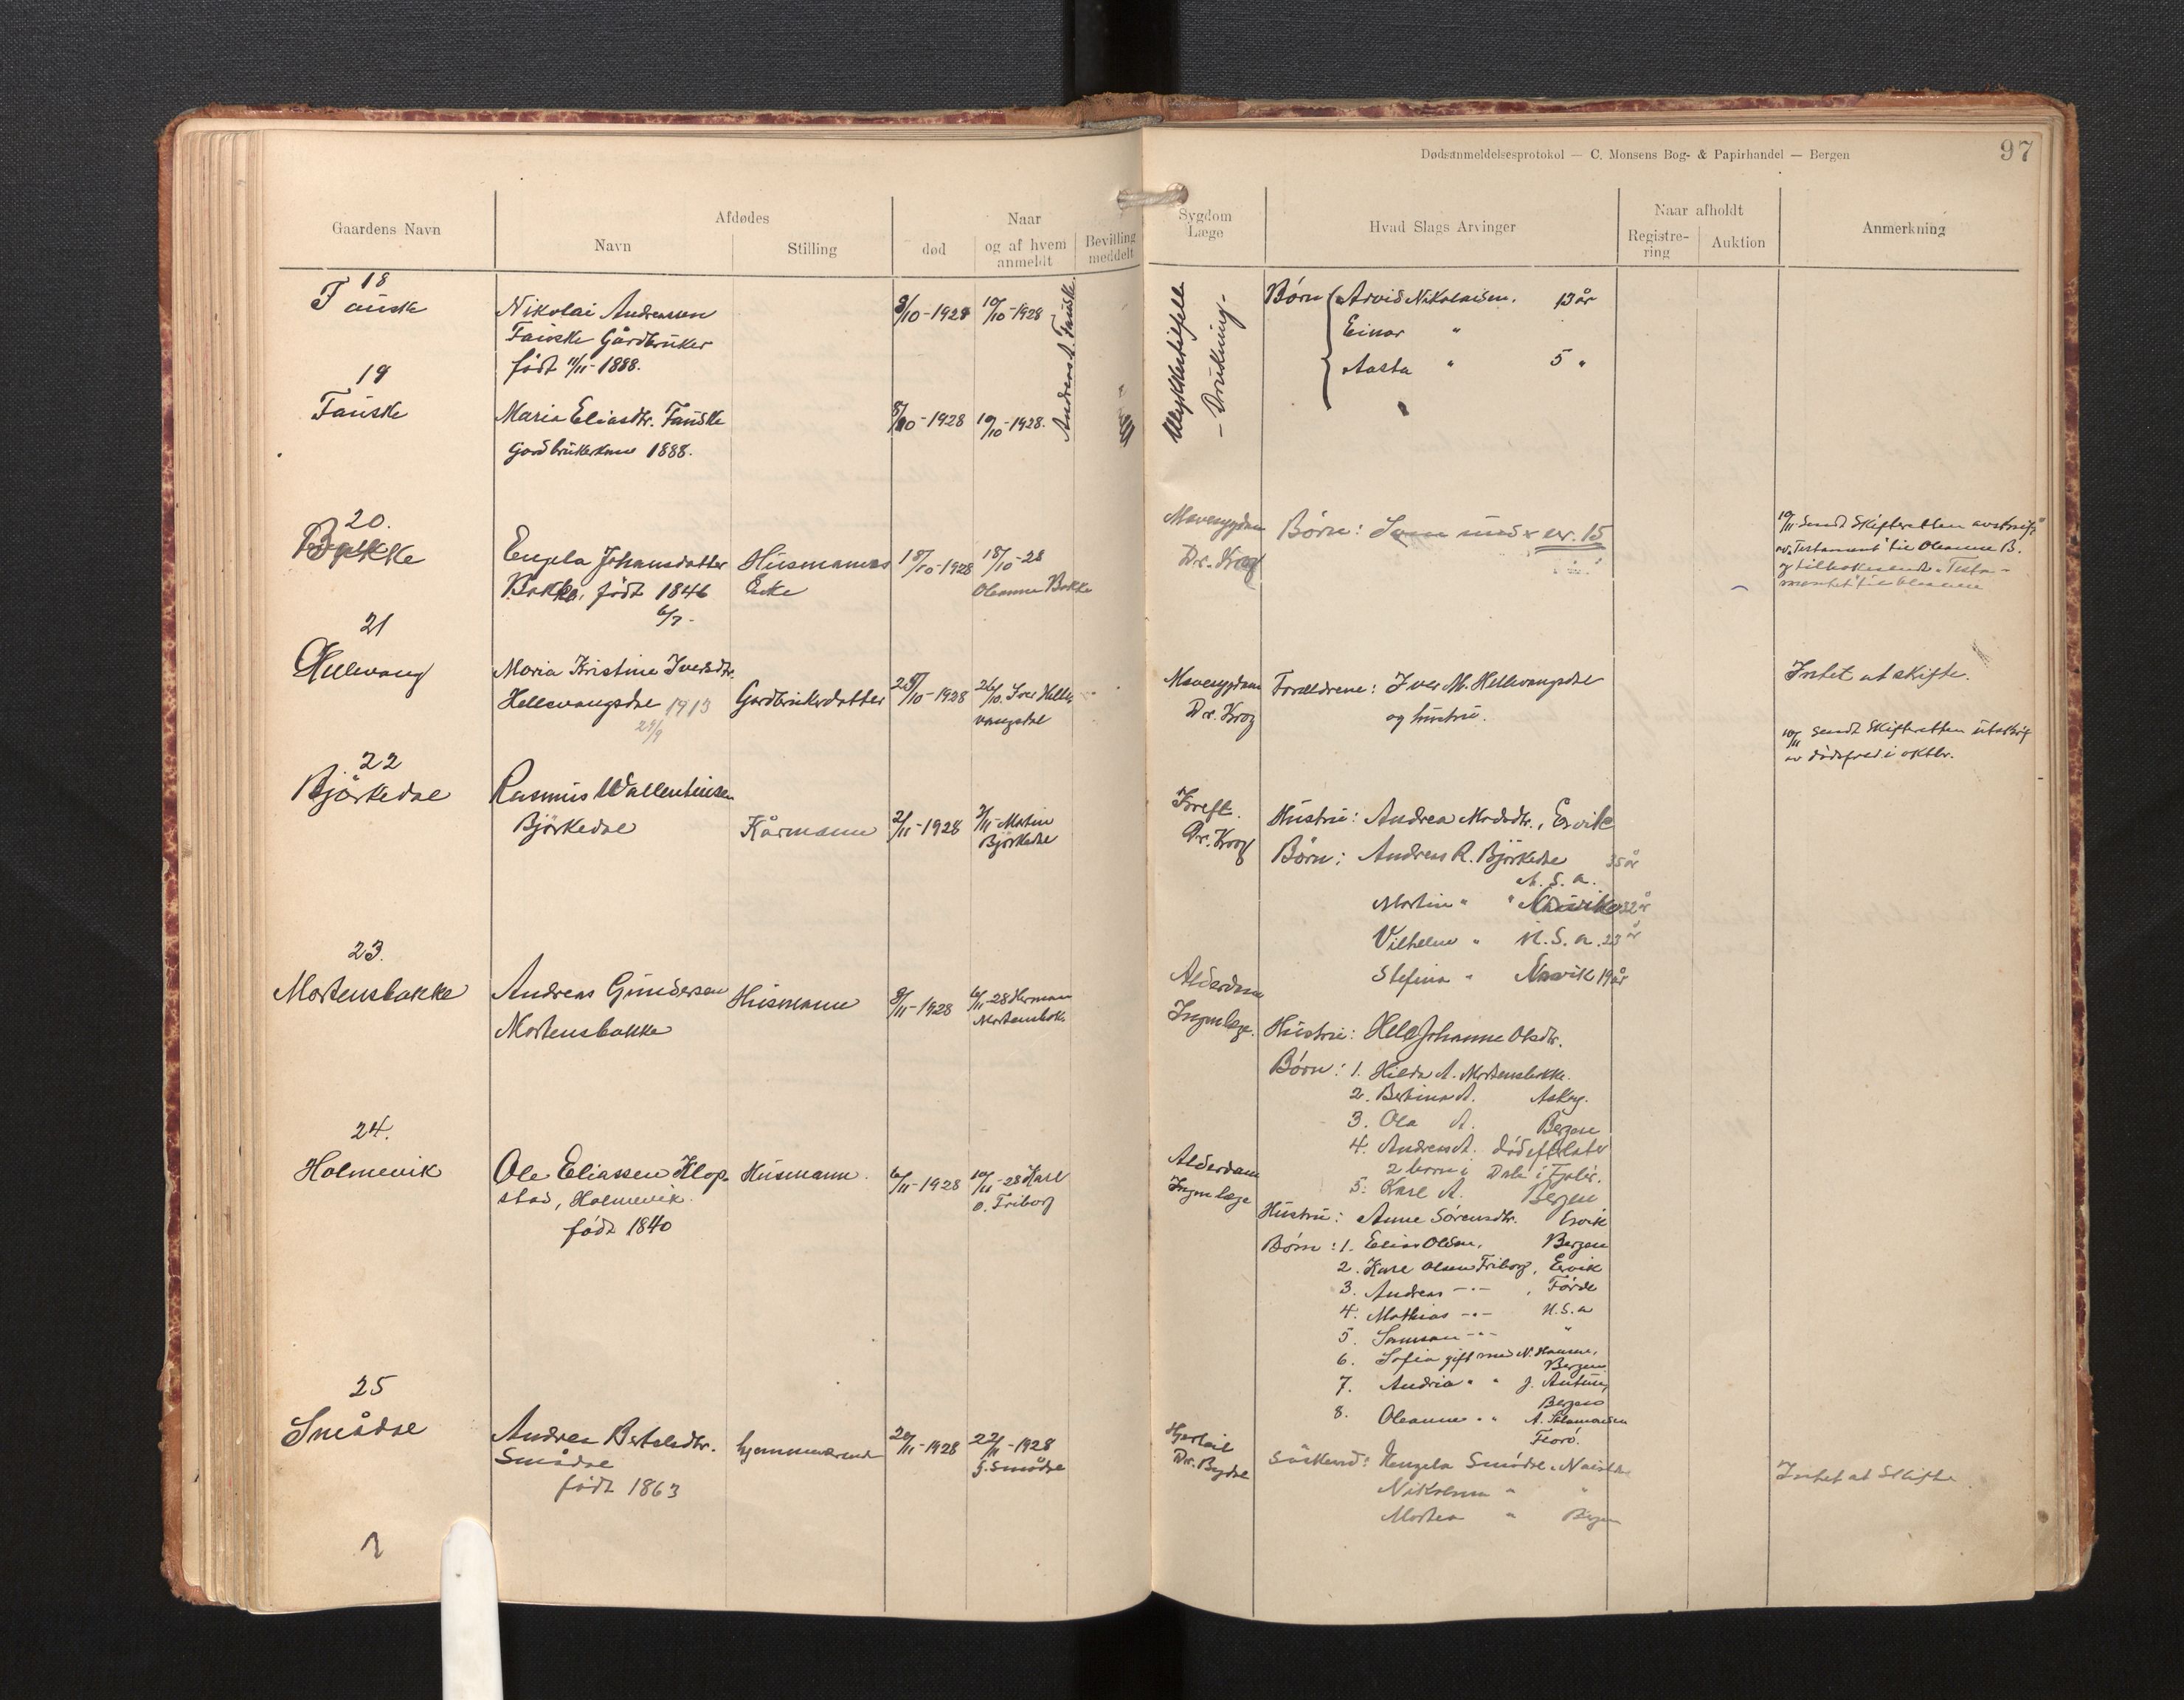 97
Dødsanmeldelsesprotokol — C. Monsens Bog- & Papirhandel — Bergen
Gaardens Navn
Afdødes
Navn
Stilling
Naar
død
og af hvem anmeldt
Bevilling meddelt
Sygdom
Læge
Hvad Slags Arvinger
Naar afholdt
Registre-
ring
Auktion
Anmerkning
18
Fauske
Nikolai Andreassen
Fauske Gårdbruker
født 11/11-1888.
8/10-1928
10/10-1928
Andreas A. Fauske
Ulykkestilfelle
- Drukning -
Børn Arvid Nikolaisen. 13 år
Einar "
Aasta " 5 "
19
Fauske
Maria Eliasdtr. Fauske
Gardbrukerkone 1888.
8/10-1928
10/10-1928.
20.
Bakke
Engela Johansdatter
Bakke, født 1846
6/7-
Husmanns
Enke
18/10-1928
18/10-28
Oleanna Bakke
Mavesygdom
Dr. Krog
Børn: Som under nr. 15
10/11 Sendt Skifteretten avskrift
av Testament til Oleanna B.
og tilbakesendt "Testa-
mentet" til Oleanna
21
Hellevang
Maria Kristine Iversdtr.
Hellevangsdal 1913
29/9
Gardbrukerdatter
25/10-1928
26/10. Iver Helle-
vangsdal
Mavesygdom
Dr. Krog
Foreldrene: Iver M. Hellevangsdal
og hustru.
Intet at skifte.
10/11 sendt Skifteretten utskrift
av dødsfred i oktbr.
22
Bjørkedal
Rasmus Wallentinsen
Bjørkedal
Kårmann
2/11-1928
3/11-Martin
Bjørkedal
Kreft.
Dr. Krog
Hustru: Andrea Madsdtr., Ervik
Børn: Andreas R. Bjørkedal 35 år
U. S. a.
Martin " " 32 år
Vilhelm " U. S. a. 23 år
Stefina " Ervik 19 år
23.
Mortensbakke
Andreas Gundersen
Mortensbakke
Husmann
3/11-1928
6/11-28 Herman
Mortensbakk
Alderdom
Ingen læge.
Hustru: Helle Johanne Olsdtr.
Børn: 1. Hilda A. Mortensbakke.
2. Bertina A. Askøy.
3. Ola A. Bergen
4. Andreas A. død efterlater
2 børn i Dale i Fjaler.
5. Karl A. Bergen
24.
Holmevik
Ole Eliassen Klop-
stad, Holmevik.
født 1840
Husmann.
6/11-1928
10/11-28 Karl
O. Friborg
Alderdom
Ingen læge
Hustru: Anne Sørensdtr. Ervik
Børn: 1. Elias Olsen, Bergen
2. Karl Olsen Friborg, Ervik
3. Andreas -"- , Førde
4. Mathias -"- U.S.a
5. Samson -"- "
6. Sofia gift med N. Hansen,
Bergen
7. Andria " " J. Antun,
Bergen
8. Oleanna " " A. Salamonsen
Florø.
25
Smådal
Andrea Bertelsdtr.
Smådal
født 1863
hjemmeværende
20/11-1928
22/11-1928
G. Smådal
Hjertfeil
Dr. Bydal
Søskend: Smådal, Naustdal
Nikolena " "
Morten " Bergen
Intet at Skifte